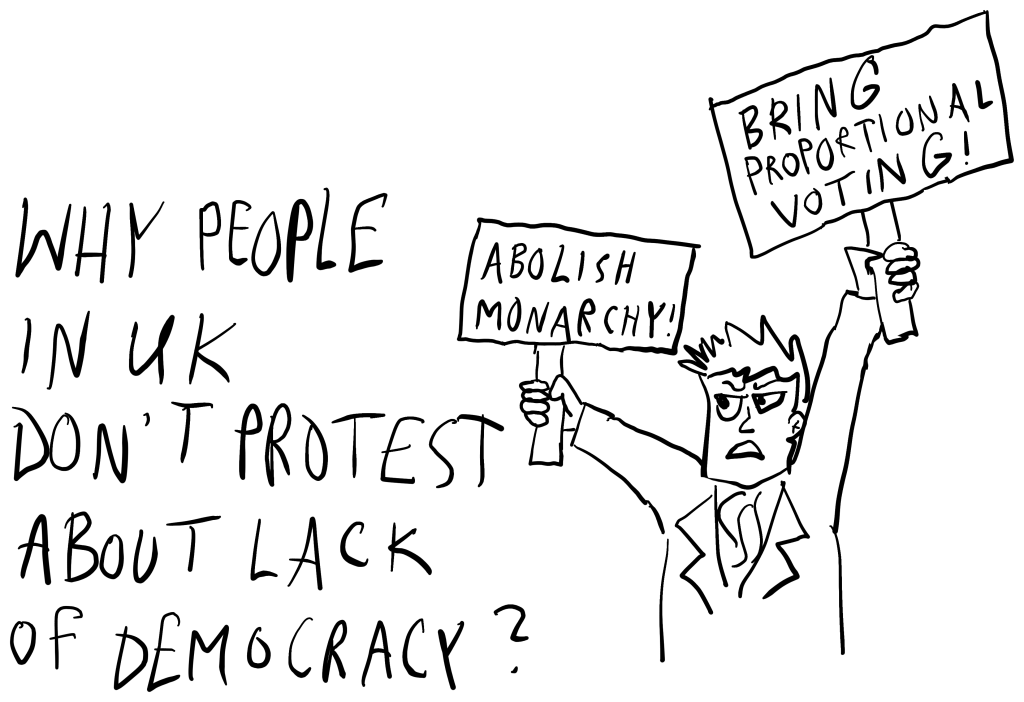 WHY PEOPLE
IN UK
DON'T PROTEST
ABOUT LACK
OF DEMOCRACY?
ABOLISH
MONARCHY!
BRING
PROPORTIONAL
VOTING!